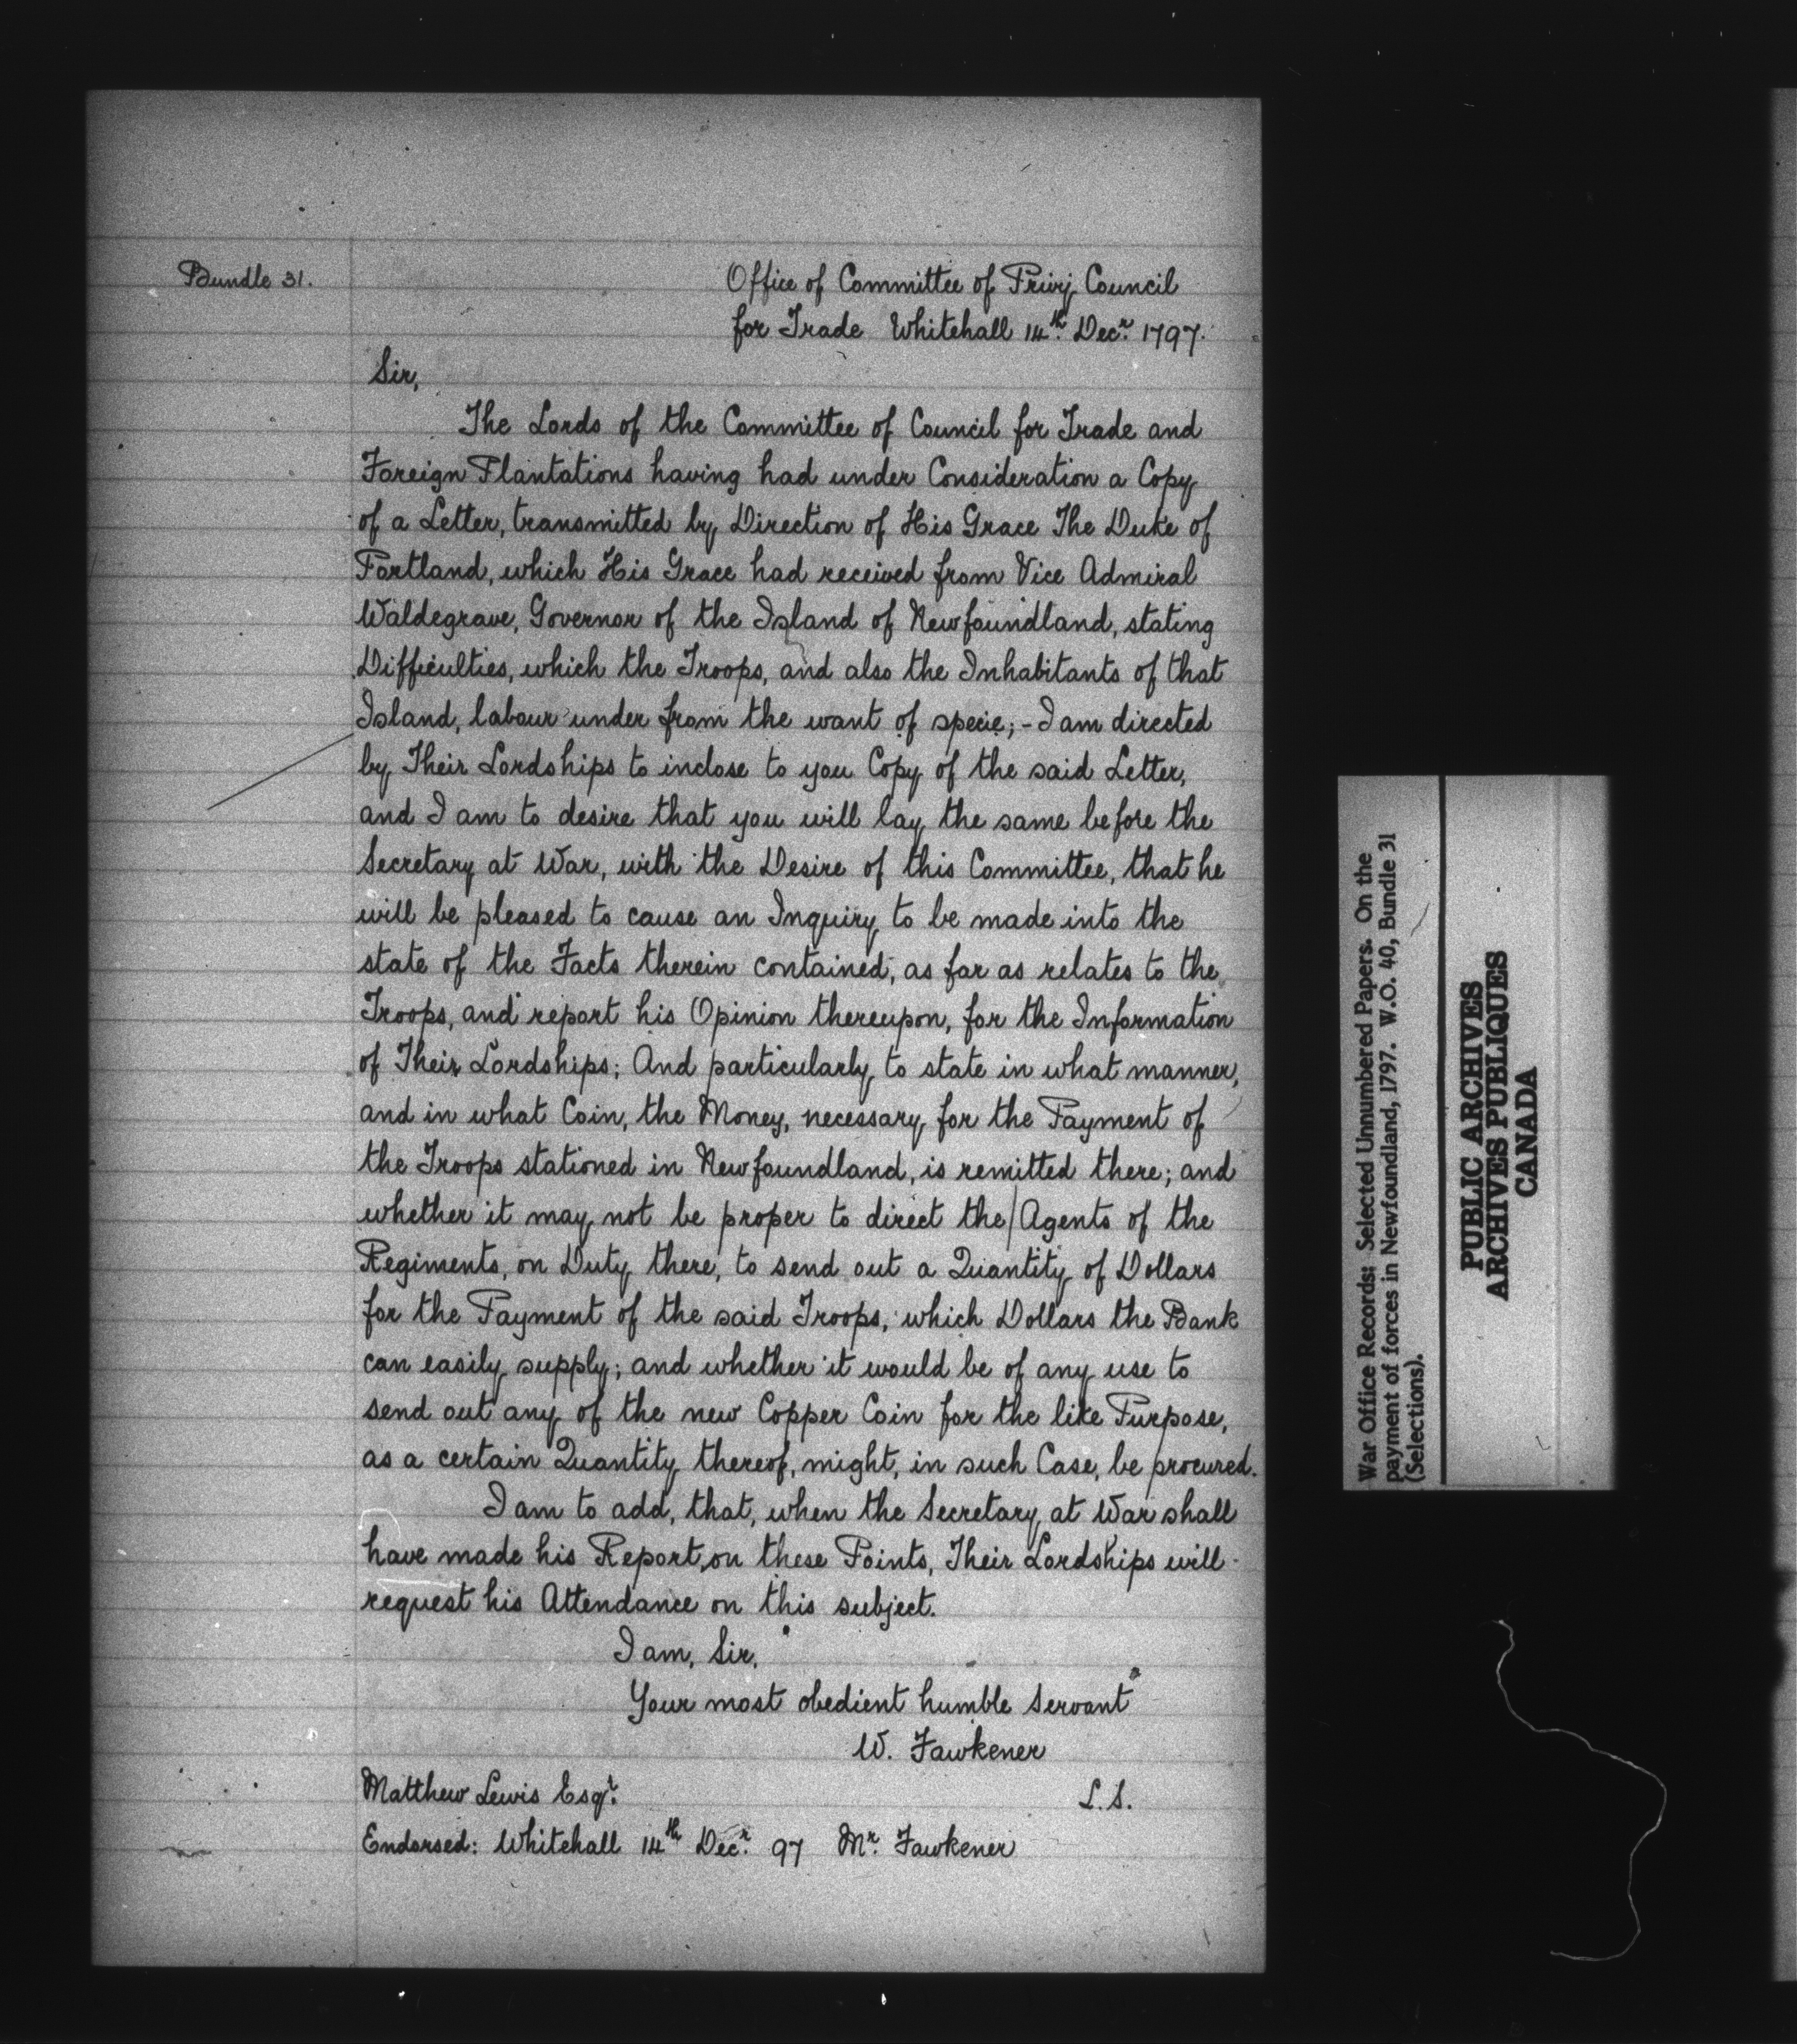 Bundle 31.
Office of Committee of Privy Council
for Trade Whitehall 14th. Decr. 1797.
Sir,
The Lords of the Committee of Council for Trade and
Foreign Plantations having had under Consideration a Copy
of a Letter, transmitted by Direction of His Grace The Duke of
Portland, which His Grace had received from Vice Admiral
Waldegrave, Governor of the Island of Newfoundland, stating
Difficulties, which the Troops, and also the Inhabitants of that
Island, labour under from the want of specie; - I am directed
by Their Lordships to inclose to you Copy of the said Letter,
and I am to desire that you will lay the same before the
Secretary at War, with the Desire of this Committee, that he
will be pleased to cause an Inquiry to be made into the
state of the Facts therein contained, as far as relates to the
Troops, and report his Opinion thereupon, for the Information
of Their Lordships; And particularly to state in what manner,
and in what Coin, the Money, necessary for the Payment of
the Troops stationed in Newfoundland, is remitted there; and
whether it may not be proper to direct the Agents of the
Regiments, on Duty there, to send out a Quantity of Dollars
for the Payment of the said Troops, which Dollars the Bank
can easily supply; and whether it would be of any use to
send out any of the new Copper Coin for the like Purpose,
as a certain Quantity thereof, might, in such Case, be procured.
I am to add, that, when the Secretary at War shall
have made his Report, on these Points, Their Lordships will
request his Attendance on this subject.
I am, Sir,
Your most obedient humble Servant
W. Fawkener
Matthew Lewis Esqr.
L.S.
Endorsed: Whitehall 14th Decr. 97 Mr. Fawkener
War Office Records: Selected Unnumbered Papers. On the
payment of forces in Newfoundland, 1797. W.O. 40, Bundle 31
(Selections).
PUBLIC ARCHIVES
ARCHIVES PUBLIQUES
CANADA